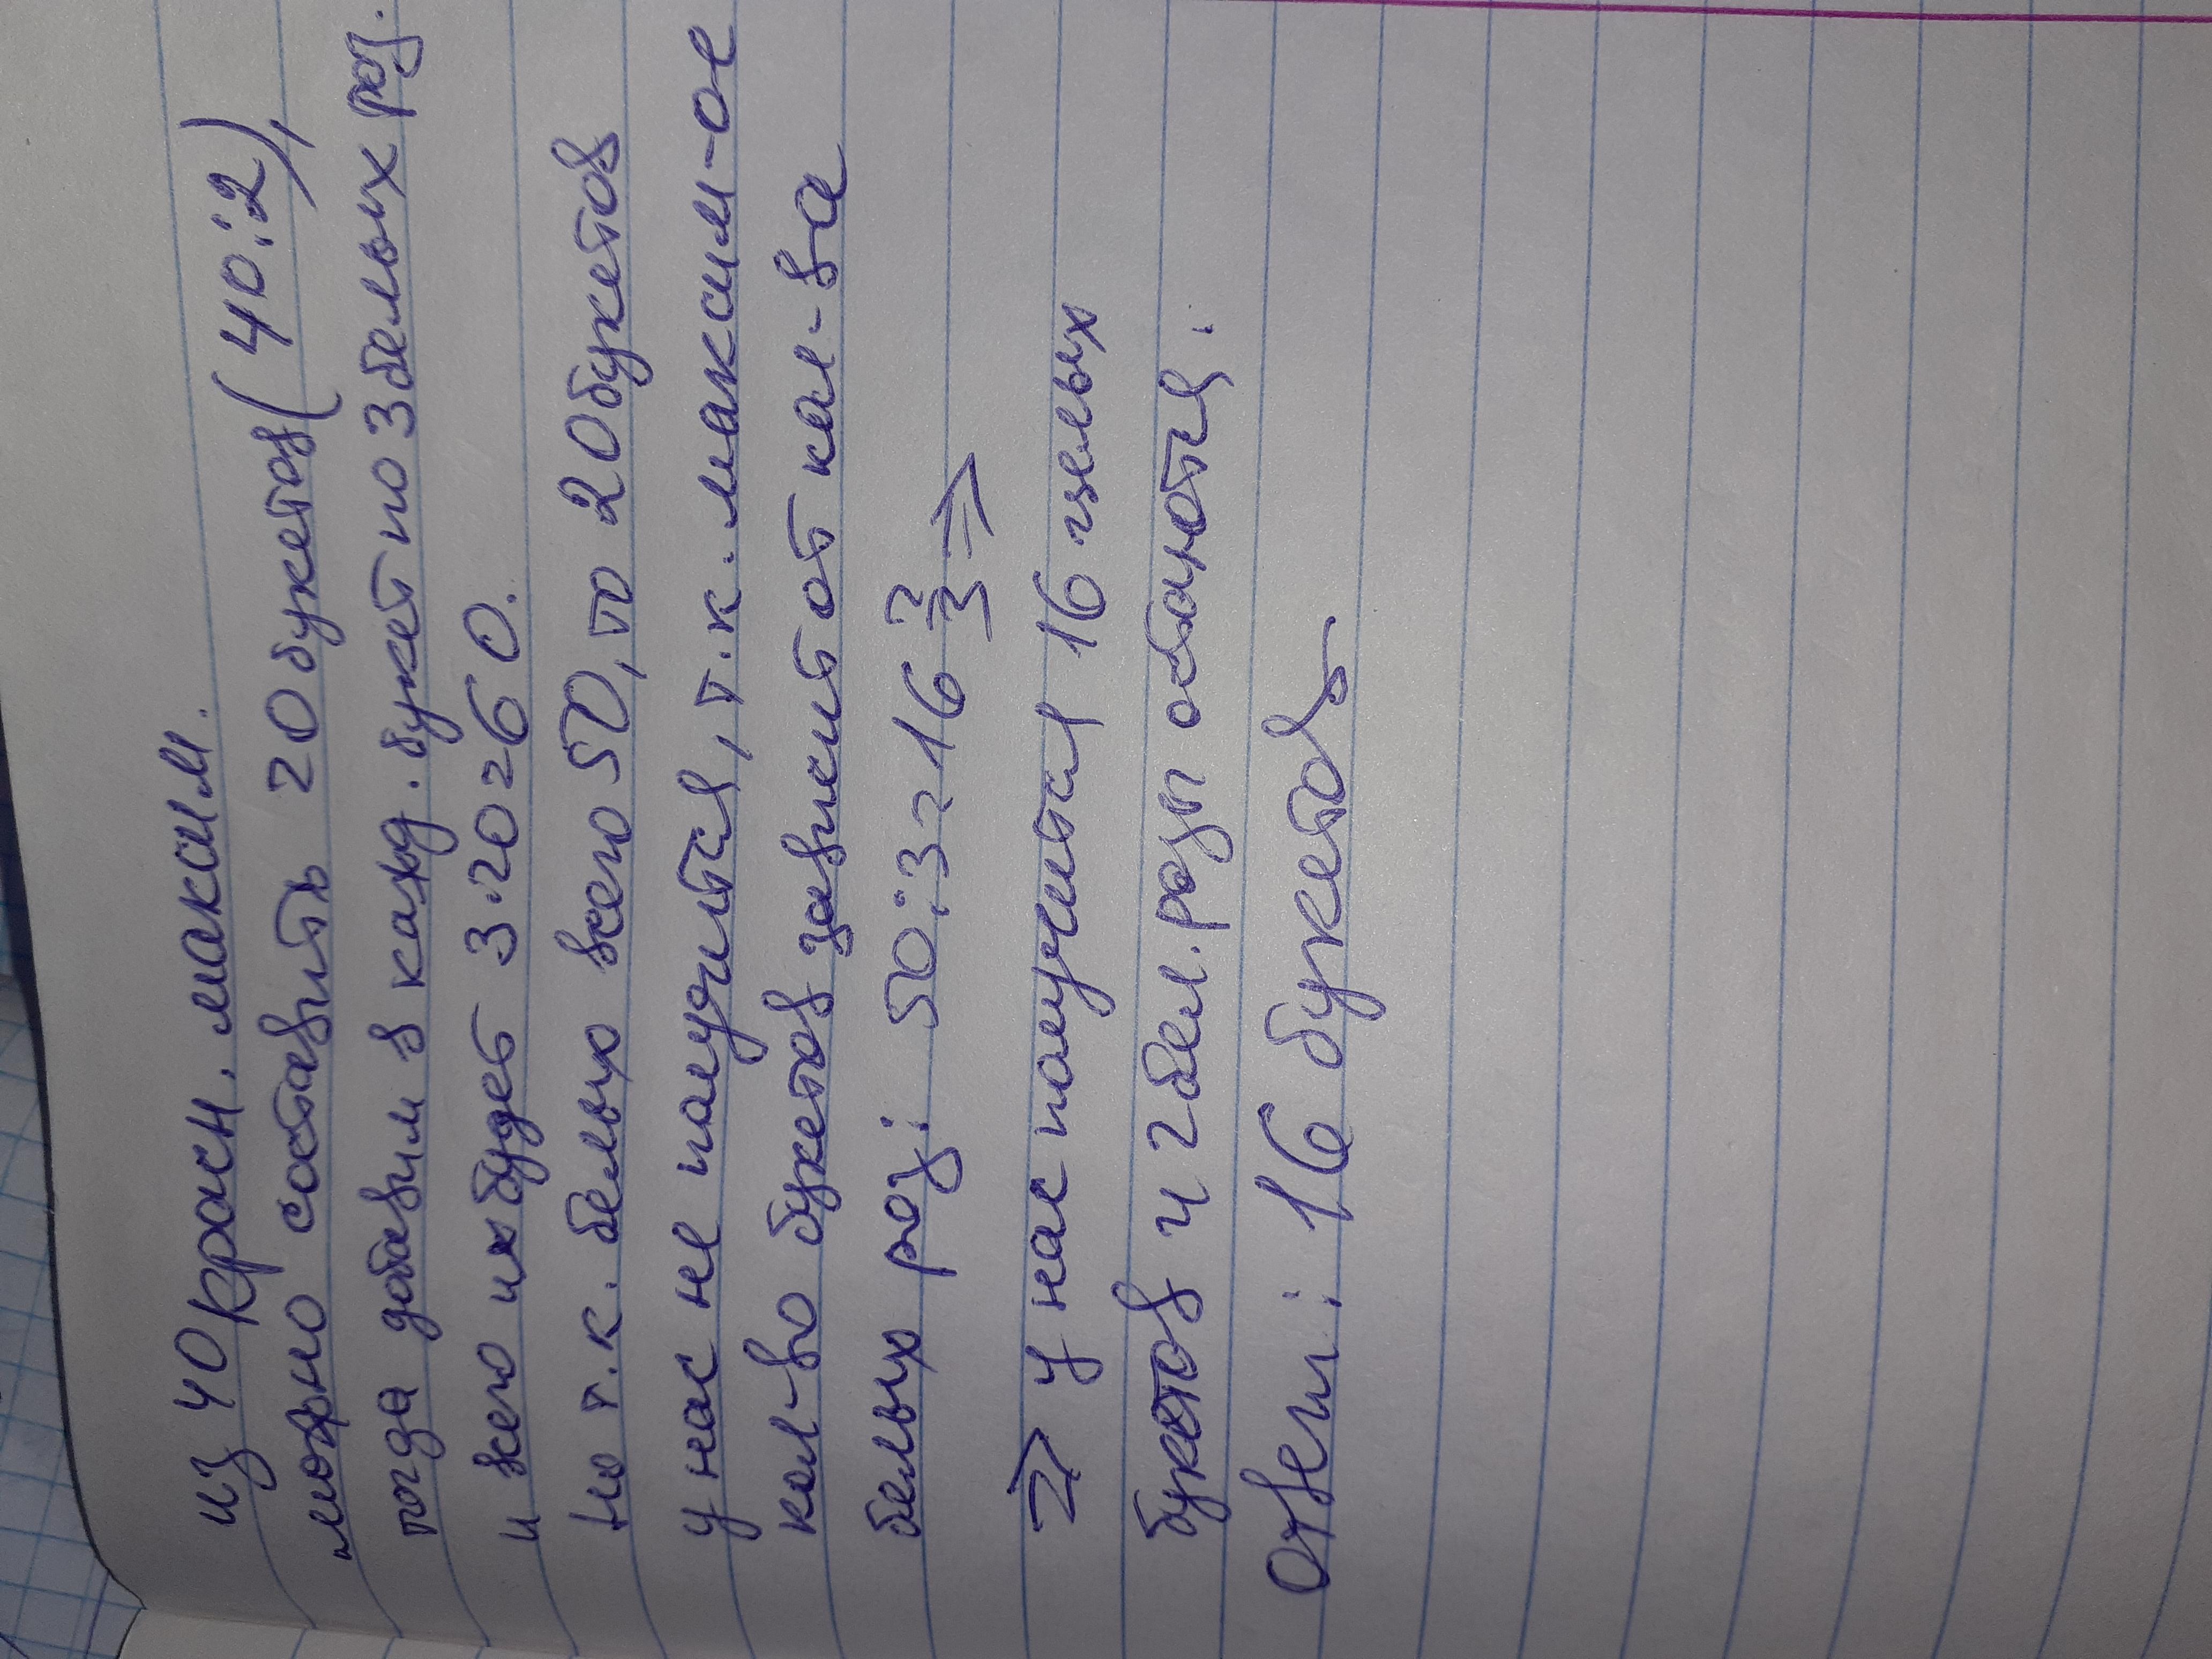 из 40 красн. максим.
можно составить 20 букетов (40:2),
тогда добавим в кажд. букет по 3 белых роз.
и всего их будет 3·20=60.
Но т.к. белых всего 50, то 20 букетов
у нас не получится, т.к. максим-ое
кол-во букетов зависит от кол-ва
белых роз: 50:3=16 2/3 =>
=> у нас получится 16 целых
букетов и 2 бел. розы останются.
Ответ: 16 букетовъ